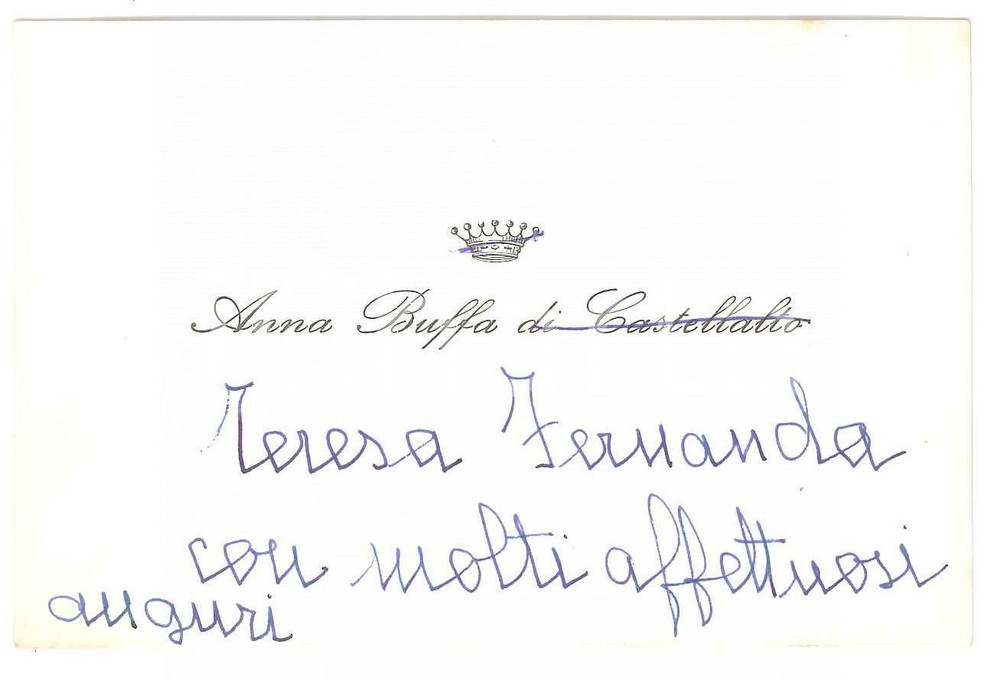 Anna Buffa di Castellalto
Teresa Fernanda
con molti affettuosi
auguri